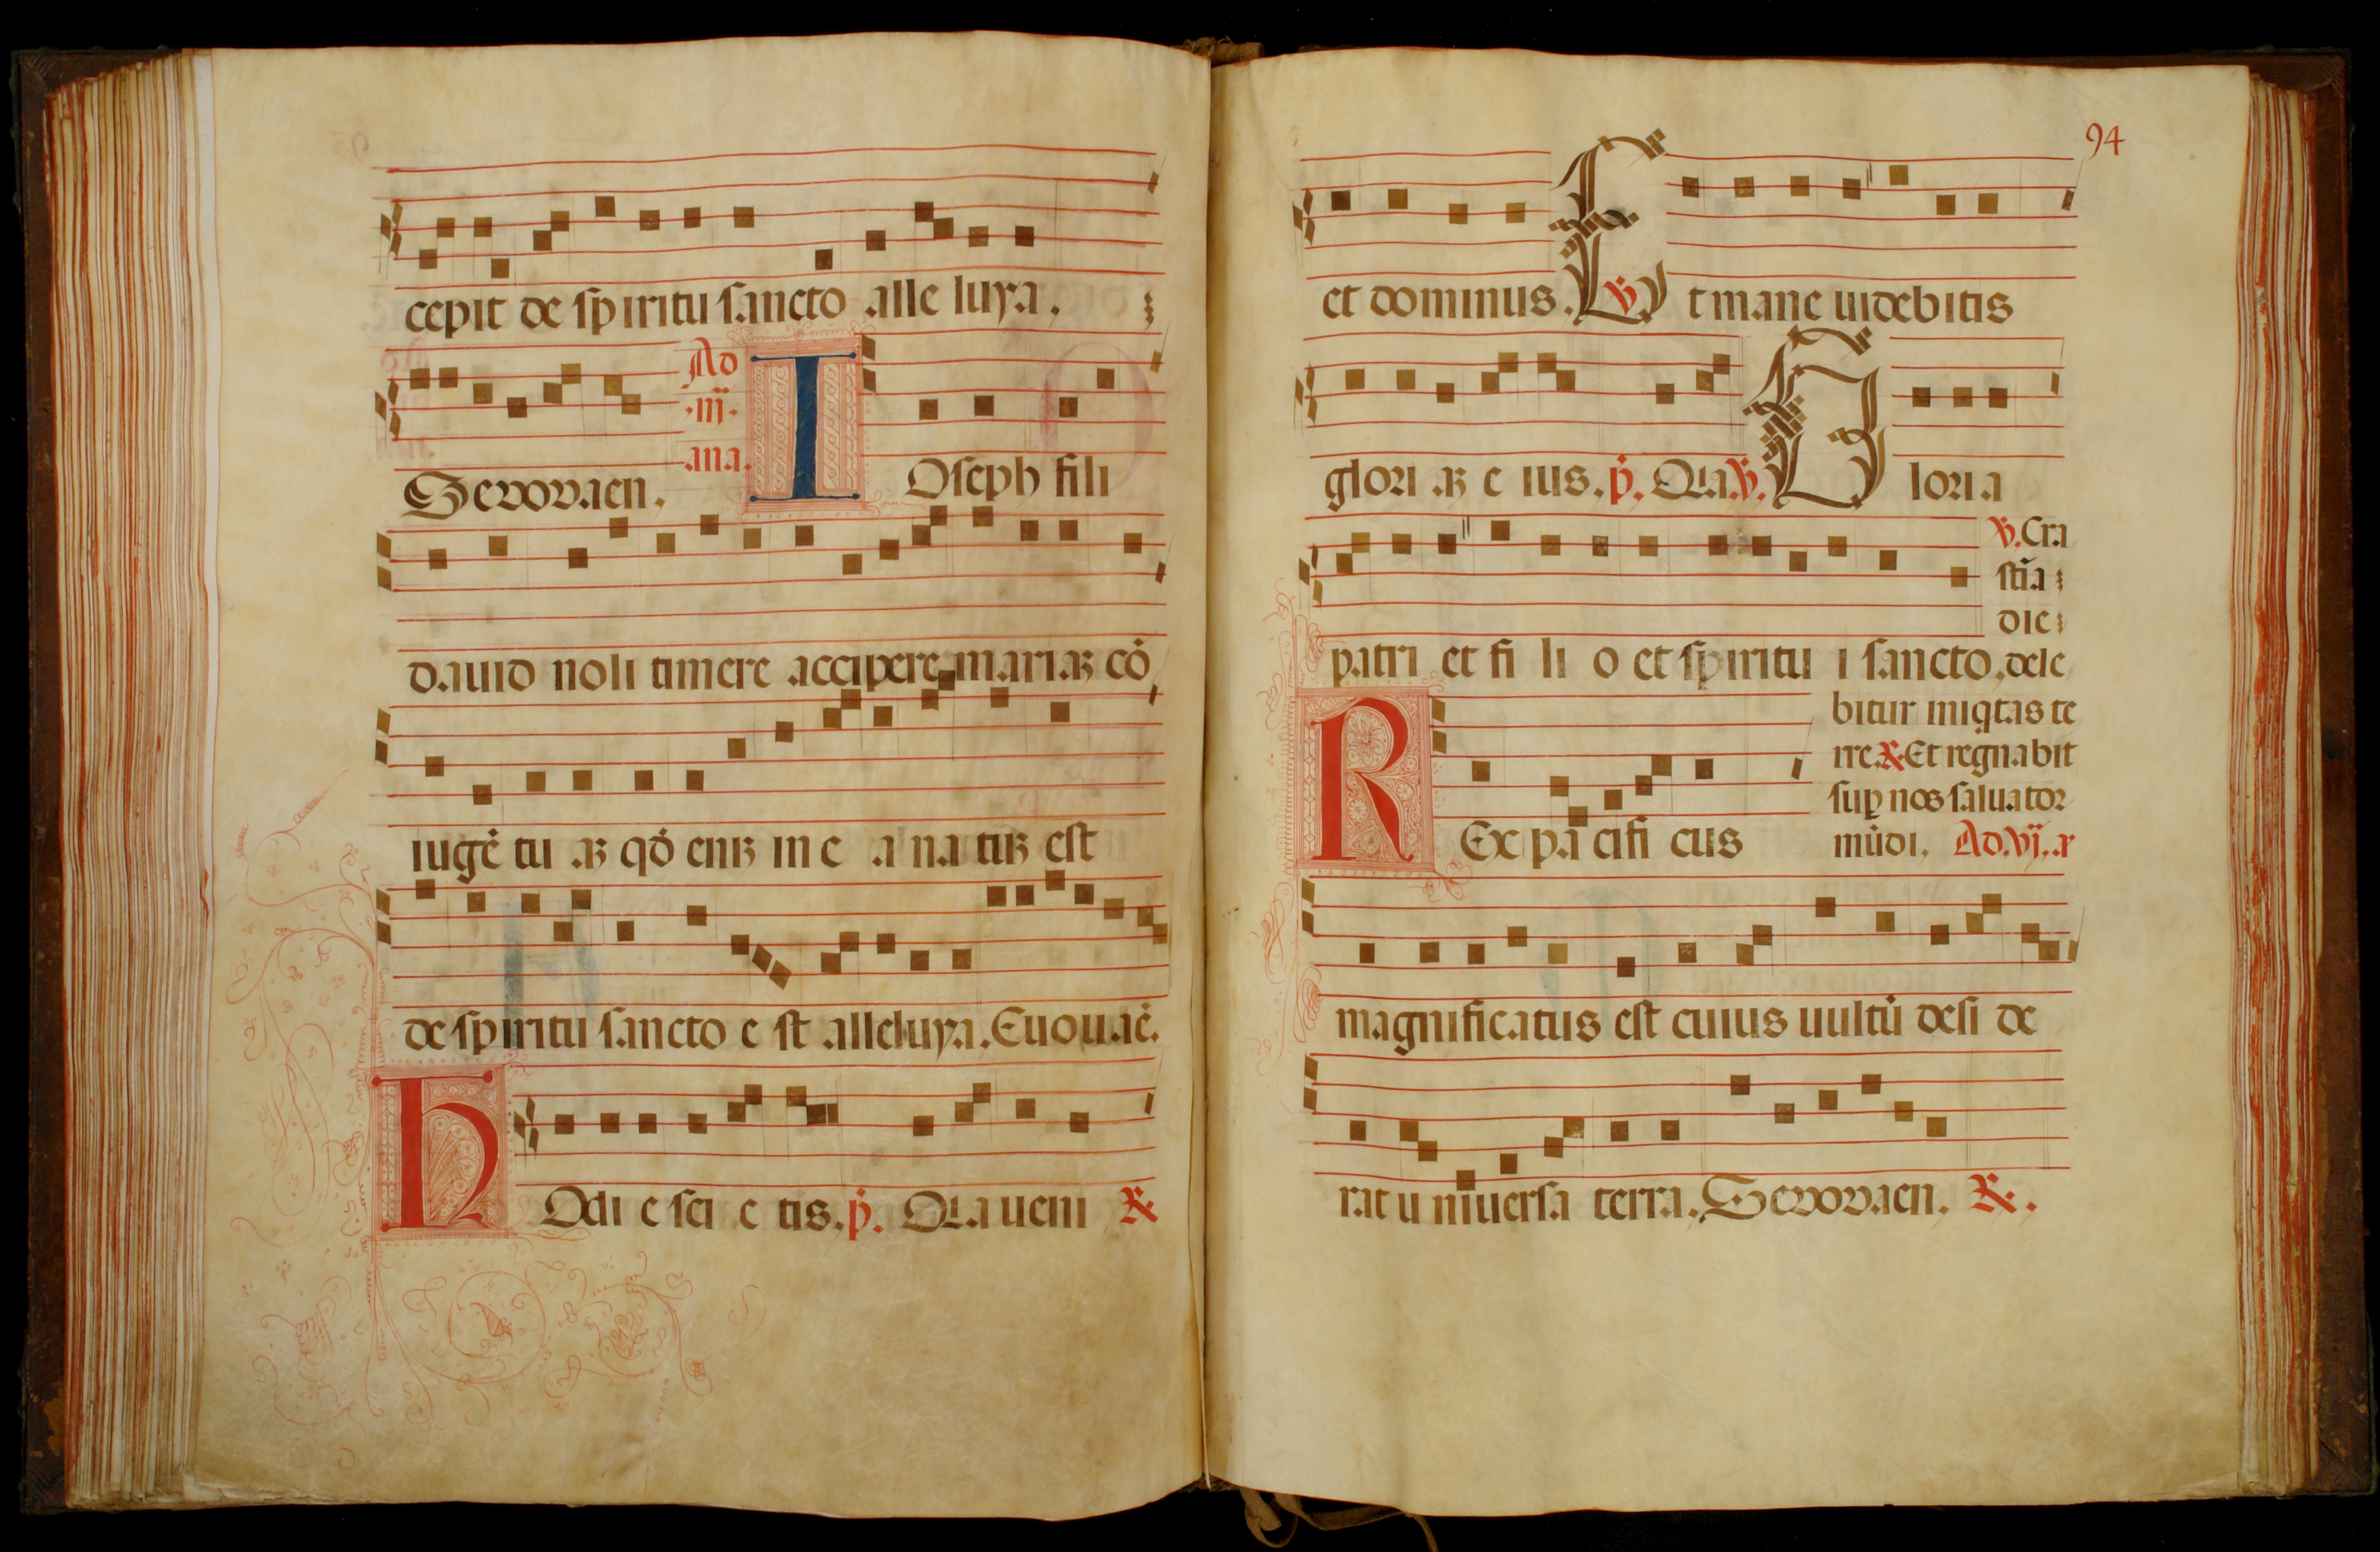 cepit de spiritu sancto alle luya.
Ad
.iij.
ana.
Seuouaen. I Oseph fili
dauid noli timere accipere mariaꝫ cō
iugē tu aꝫ qđ eniꝫ in e a na tuꝫ est
de spiritu sancto e st alleluya. Euouaē.
H Odi e sci e tis. p̄. Quia ueni ℟
94
et dominus. ℣ E t mane uidebitis
glori aꝫ e ius. p̄. Quia ℣. G lori a
℣. Cra
stīa
die
patri et fi li o et spiritu i sancto. dele
bitur iniqtas te
rre. ℟. Et regnabit
suꝑ nos saluator
R Ex pa cifi cus mūdi. Ad. vj. a
magnificatus est cuius uultū desi de
rat u niuersa terra. Seuouaen. ℟.